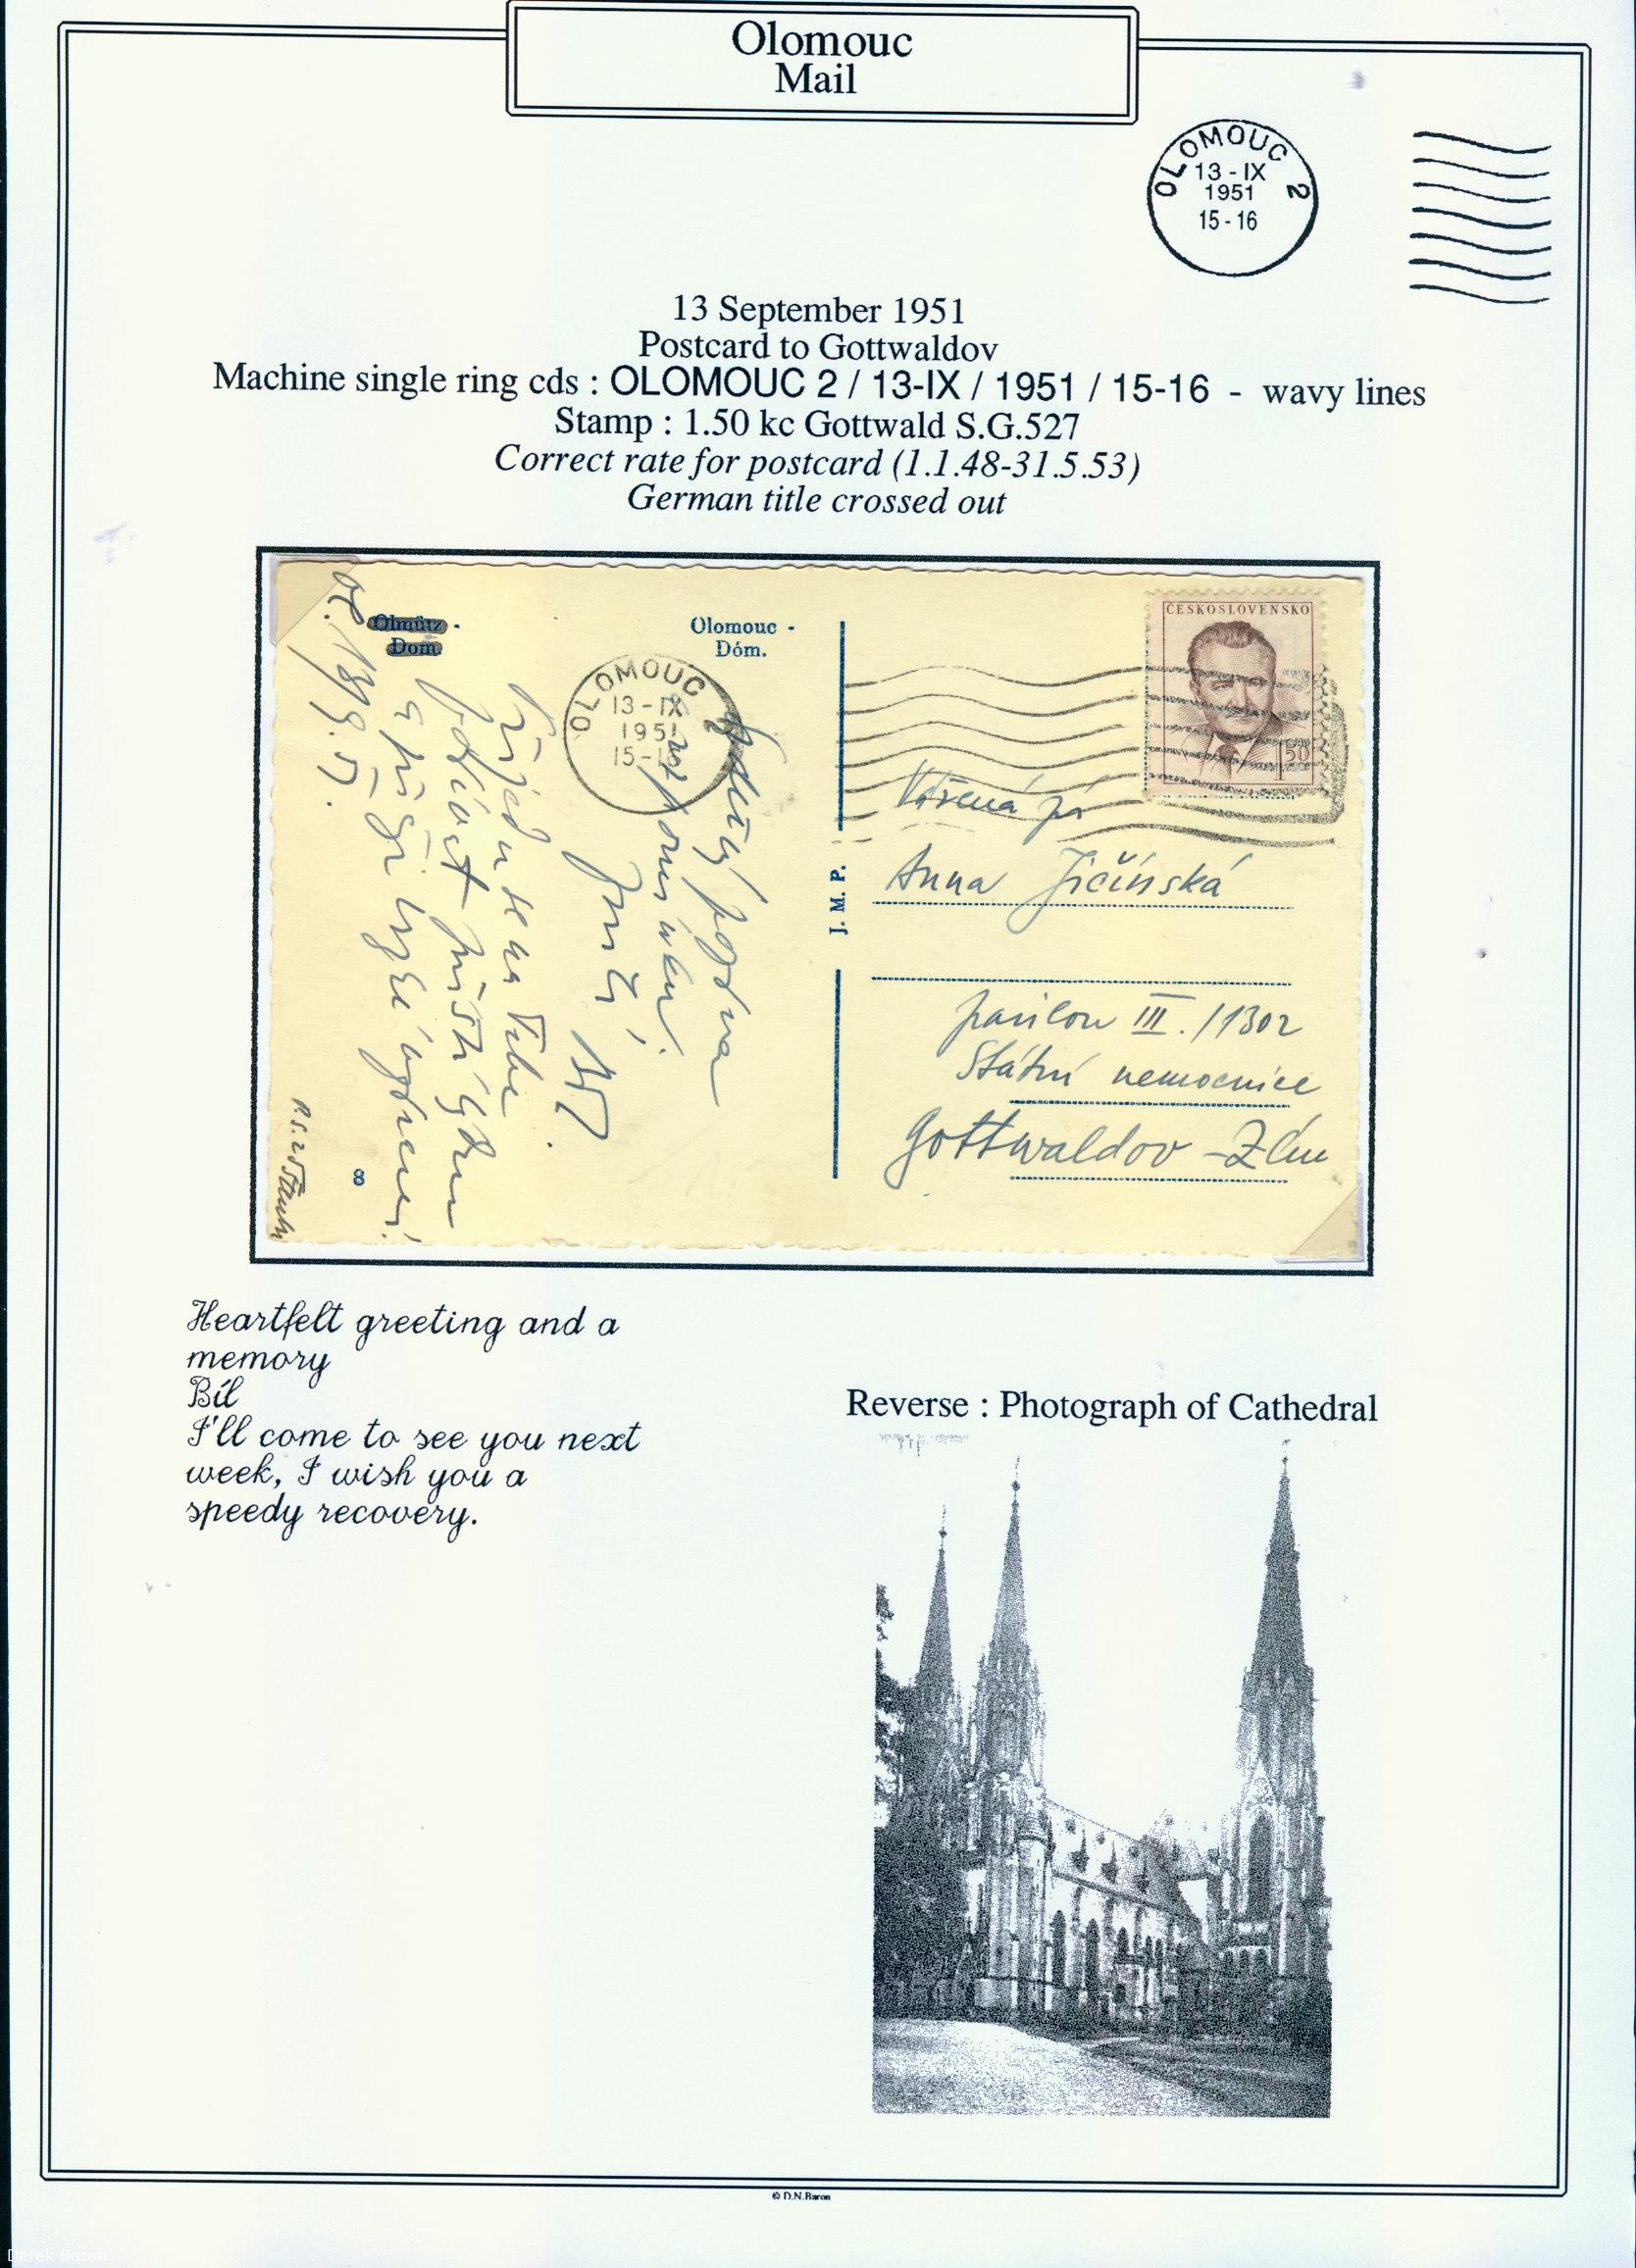 Olomouc
Mail
OLOMOUC 2
13 - IX
1951
15 - 16
13 September 1951
Postcard to Gottwaldov
Machine single ring cds : OLOMOUC 2 / 13-IX / 1951 / 15-16 - wavy lines
Stamp : 1.50 kc Gottwald S.G.527
Correct rate for postcard (1.1.48-31.5.53)
German title crossed out
Olmütz -
Dom.
Olomouc -
Dóm.
OLOMOUC 2
13 - IX
1951
15-1
ČESKOSLOVENSKO
1 50
J. M. P.
Vážená pí
Anna Jičínská
pavilon III. / 1302
Státní nemocnice
Gottwaldov - Zlín
Srdečný pozdrav
a vzpomínku
Přijedu se na Tebe
podívat příští týden
a přeji brzké uzdravení!
8
Heartfelt greeting and a
memory
Bíl
I'll come to see you next
week, I wish you a
speedy recovery.
Reverse : Photograph of Cathedral
© D.N.Baron
Derek Baron